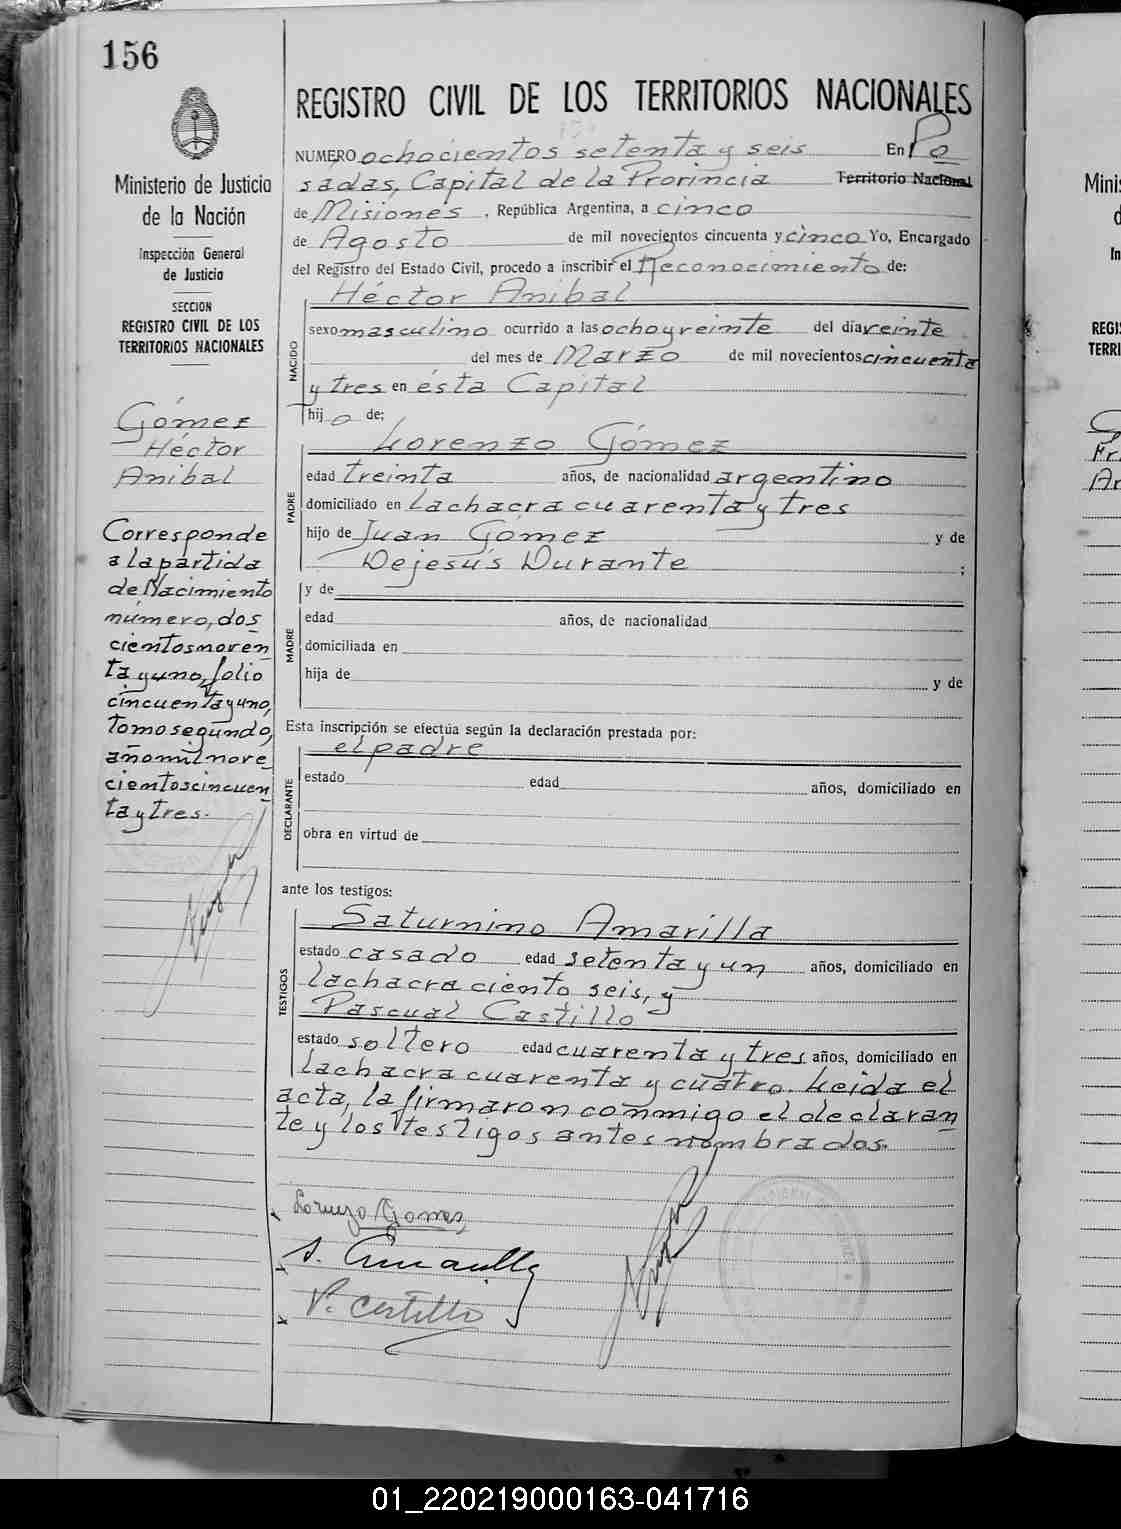 156
REGISTRO CIVIL DE LOS TERRITORIOS NACIONALES
Ministerio de Justicia
de la Nación
Inspección General
de Justicia
SECCION
REGISTRO CIVIL DE LOS
TERRITORIOS NACIONALES
Gómez
Héctor
Anibal
Corresponde
a la partida
de Nacimiento
número, dos
cientos noven
ta y uno, folio
cincuenta y uno,
tomo segundo,
año mil nove
cientos cincuen
ta y tres.
NUMERO ochocientos setenta y seis En Po
sadas, Capital de la Provincia Territorio Nacional
de Misiones, República Argentina, a cinco
de Agosto de mil novecientos cincuenta y cinco Yo, Encargado
del Registro del Estado Civil, procedo a inscribir el Reconocimiento de:
Héctor Anibal
NACIDO
sexo masculino ocurrido a las ocho y veinte del día veinte
del mes de Marzo de mil novecientos cincuenta
y tres en ésta Capital
hijo de:
Lorenzo Gómez
PADRE
edad treinta años, de nacionalidad argentino
domiciliado en la chacra cuarenta y tres
hijo de Juan Gómez y de
Dejesús Durante ;
MADRE
y de
edad años, de nacionalidad
domiciliada en
hija de y de
Esta inscripción se efectúa según la declaración prestada por:
el padre
DECLARANTE
estado edad años, domiciliado en
obra en virtud de
ante los testigos:
Saturnino Amarilla
TESTIGOS
estado casado edad setenta y un años, domiciliado en
la chacra ciento seis, y
Pascual Castillo
estado soltero edad cuarenta y tres años, domiciliado en
la chacra cuarenta y cuatro. Leida el
acta, la firmaron conmigo el declaran
te y los testigos antes nombrados.
Lorenzo Gomes
S. Amarilla
P. Castillo
Minis
d
In
REGIS
TERRI
G
Fr
An
01_220219000163-041716